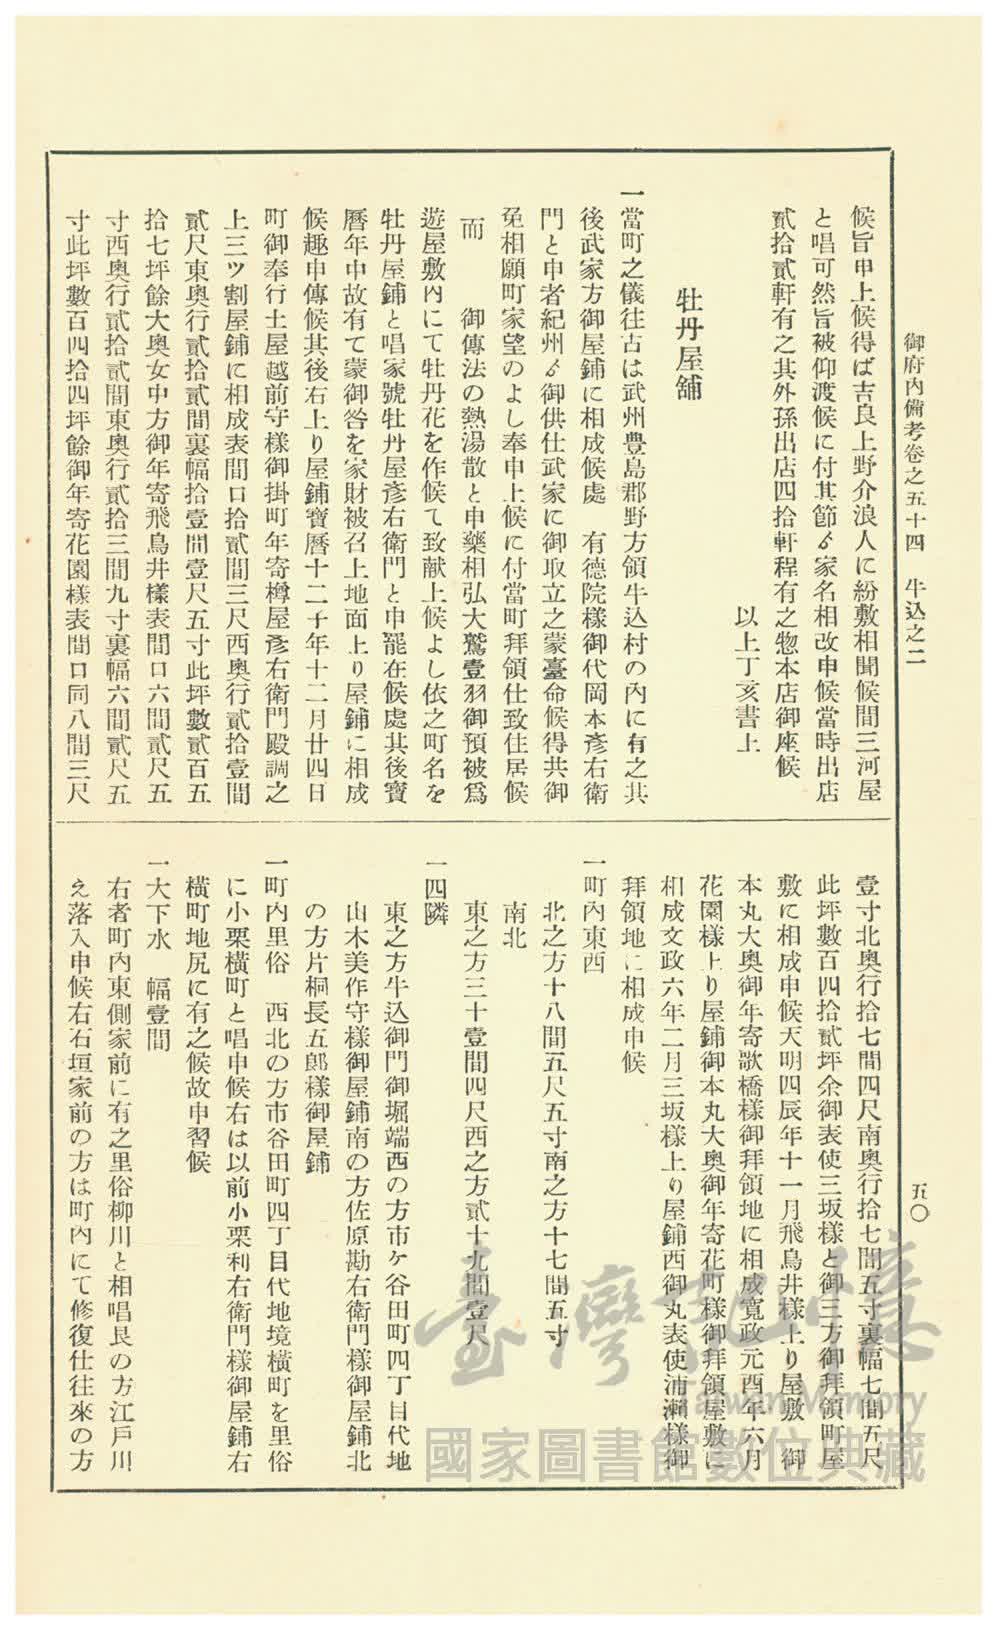 御府内備考卷之五十四　牛込之二
五〇
候旨申上候得ば吉良上野介浪人に紛敷相聞候間三河屋
と唱可然旨被仰渡候に付其節ゟ家名相改申候當時出店
貳拾貳軒有之其外孫出店四拾軒程有之惣本店御座候
以上丁亥書上
牡丹屋舖
一當町之儀往古は武州豊島郡野方領牛込村の内に有之其
後武家方御屋鋪に相成候處　有德院樣御代岡本彥右衛
門と申者紀州ゟ御供仕武家に御取立之蒙臺命候得共御
免相願町家望のよし奉申上候に付當町拜領仕致住居候
而　　御傳法の熱湯散と申藥相弘大鷲壹羽御預被爲
遊屋敷内にて牡丹花を作候て致献上候よし依之町名を
牡丹屋鋪と唱家號牡丹屋彥右衛門と申罷在候處其後寶
曆年中故有て蒙御咎を家財被召上地面上り屋鋪に相成
候趣申傳候其後右上り屋鋪寶曆十二子年十二月廿四日
町御奉行土屋越前守樣御掛町年寄樽屋彥右衛門殿調之
上三ツ割屋鋪に相成表間口拾貳間三尺西奧行貳拾壹間
貳尺東奧行貳拾貳間裏幅拾壹間壹尺五寸此坪數貳百五
拾七坪餘大奧女中方御年寄飛鳥井樣表間口六間貳尺五
寸西奧行貳拾貳間東奧行貳拾三間九寸裏幅六間貳尺五
寸此坪數百四拾四坪餘御年寄花園樣表間口同八間三尺
壹寸北奧行拾七間四尺南奧行拾七間五寸裏幅七間五尺
此坪數百四拾貳坪余御表使三坂樣と御三方御拜領町屋
敷に相成申候天明四辰年十一月飛鳥井樣上り屋敷　御
本丸大奧御年寄歌橋樣御拜領地に相成寬政元酉年六月
花園樣上り屋鋪御本丸大奧御年寄花町樣御拜領屋敷に
相成文政六年二月三坂樣上り屋鋪西御丸表使浦瀨樣御
拜領地に相成申候
一町内東西
北之方十八間五尺五寸南之方十七間五寸
南北
東之方三十壹間四尺西之方貳十九間壹尺
一四隣
東之方牛込御門御堀端西の方市ケ谷田町四丁目代地
山木美作守樣御屋鋪南の方佐原勘右衛門樣御屋鋪北
の方片桐長五郎樣御屋鋪
一町内里俗　西北の方市谷田町四丁目代地境橫町を里俗
に小栗橫町と唱申候右は以前小栗利右衛門樣御屋鋪右
橫町地尻に有之候故申習候
一大下水　幅壹間
右者町内東側家前に有之里俗柳川と相唱艮の方江戶川
え落入申候右石垣家前の方は町内にて修復仕往來の方
臺灣記憶
Taiwan Memory
國家圖書館數位典藏